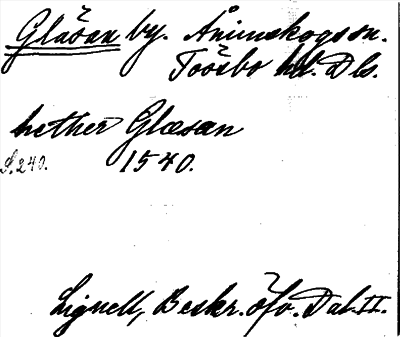 Gläsan by. Ånimskogs sn.
Tössbo hd. Dls.
hether Glæsan
S. 240. 1540.
Lignell, Beskr. öfv. Dal. II.